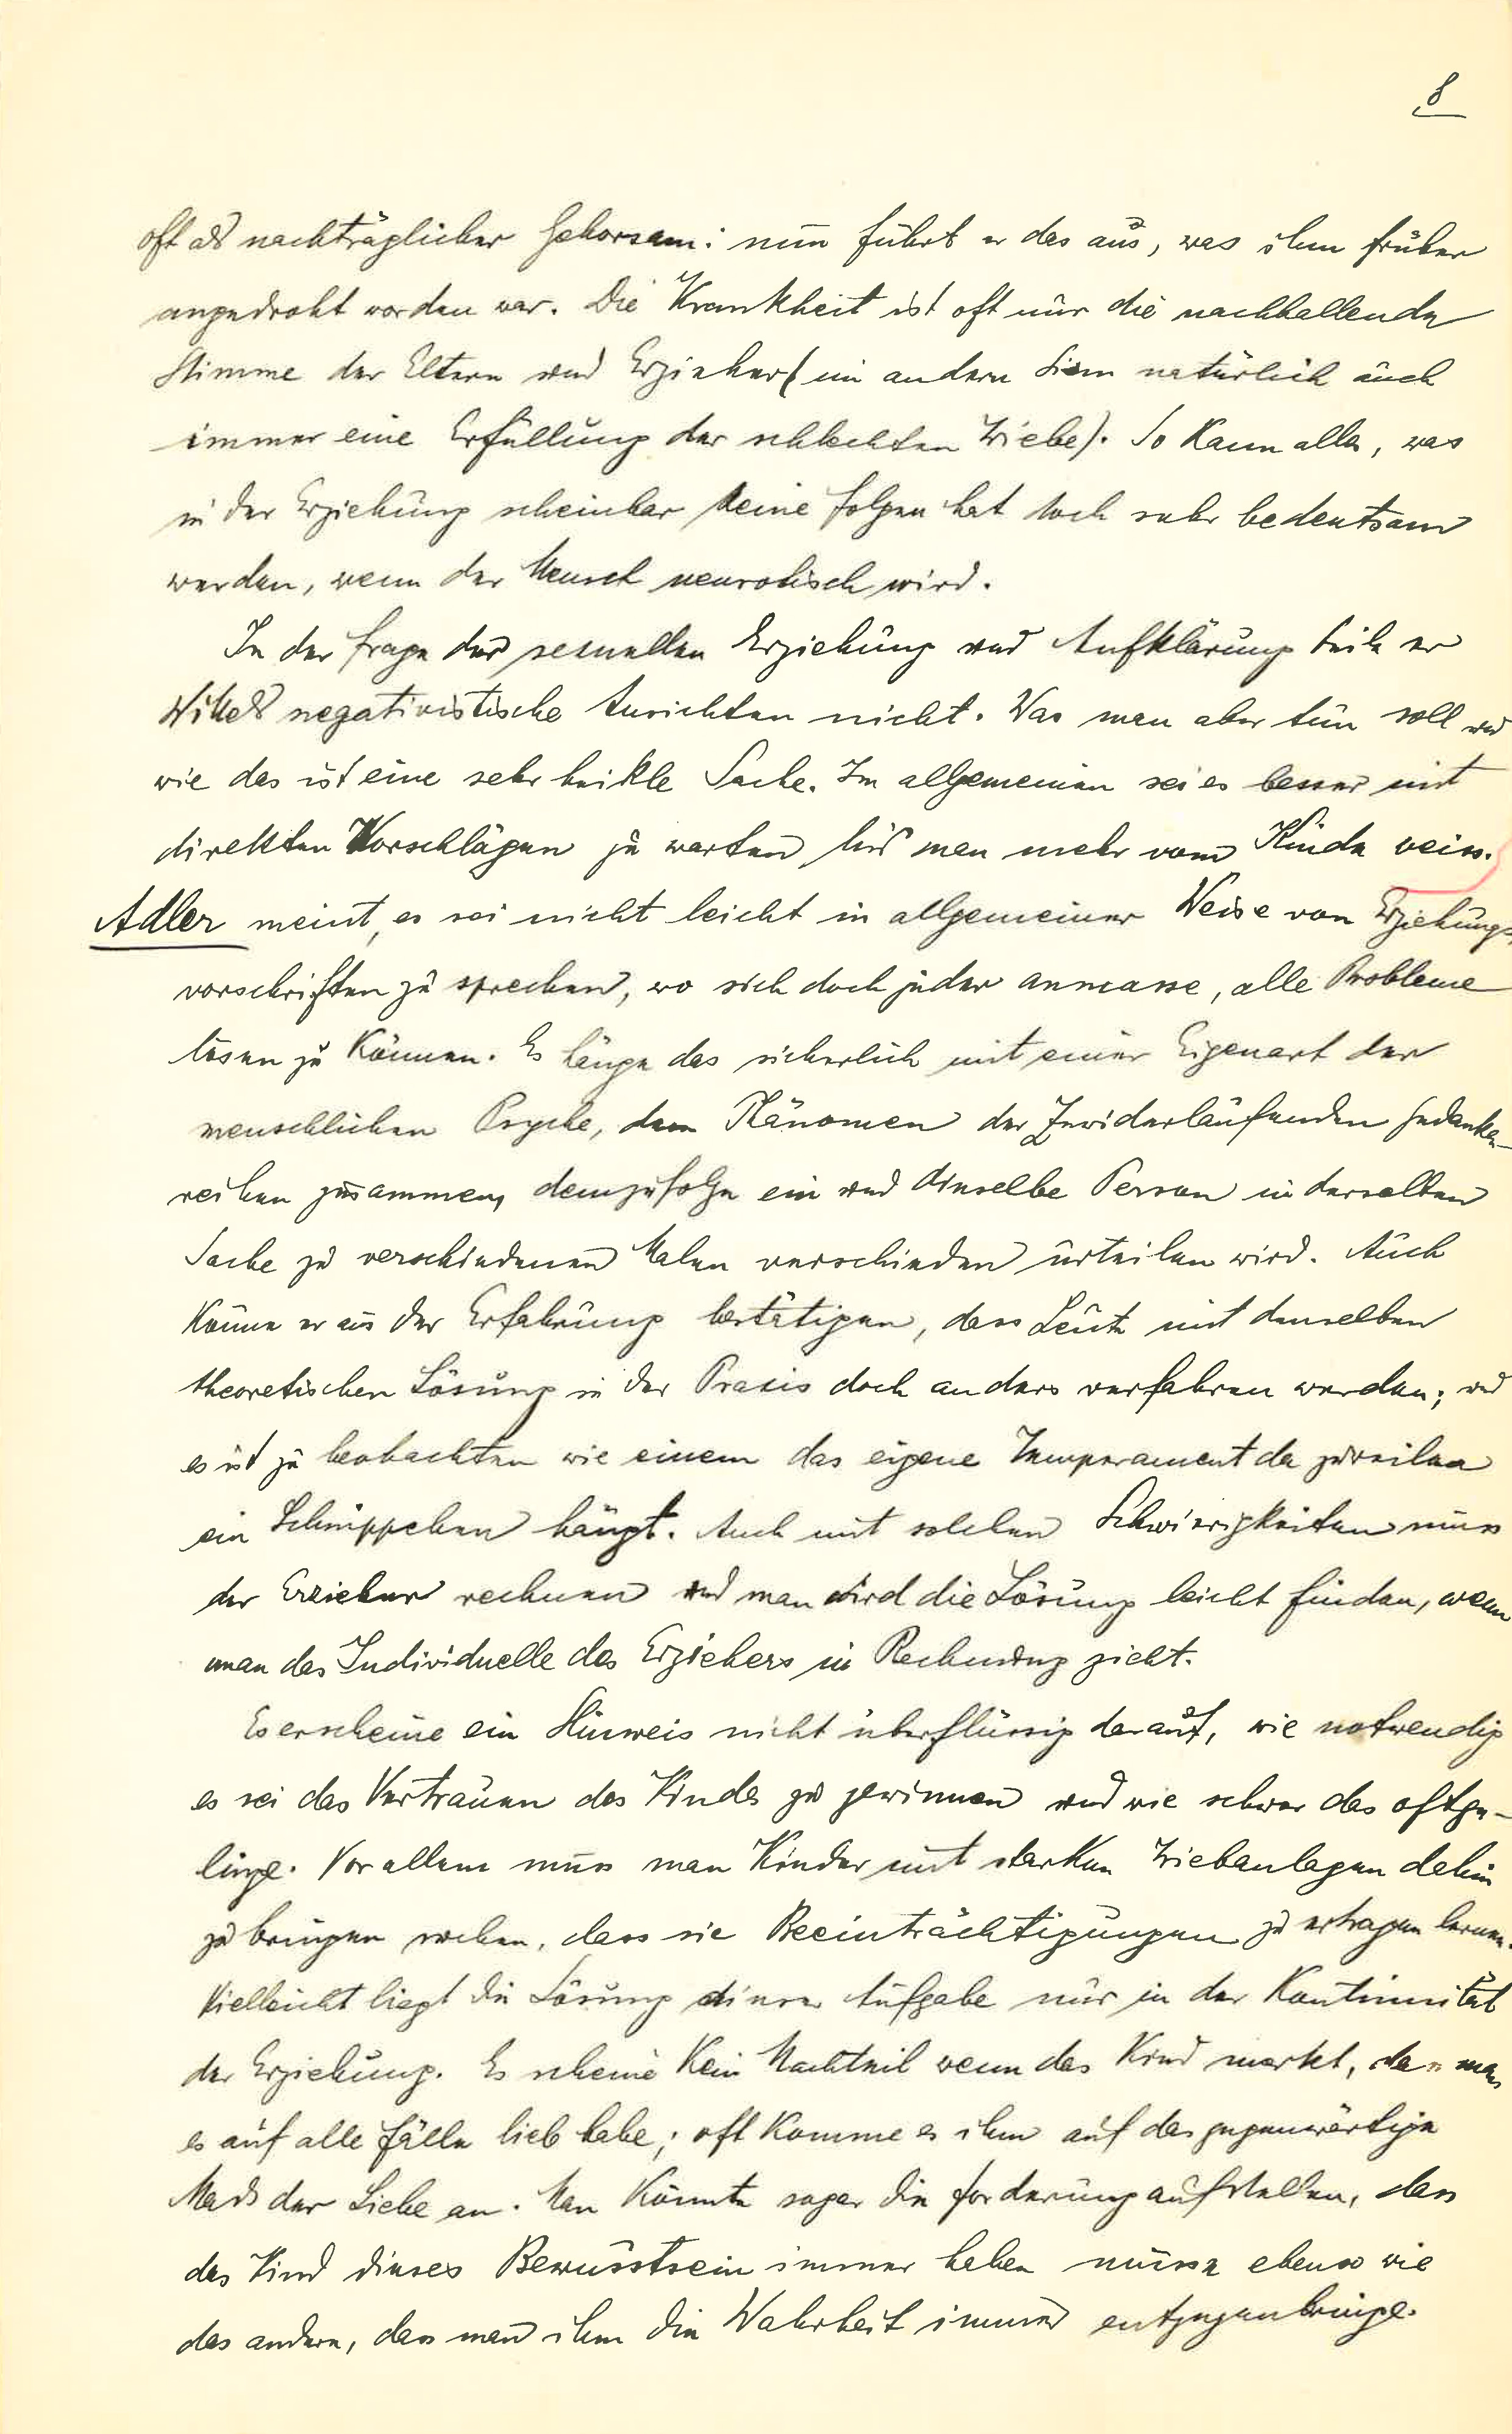 8
oft als nachträglicher Gehorsam: nun führt er das aus, was ihm früher
angedroht worden war. Die Krankheit ist oft nur die nachhallende
Stimme der Eltern und Erzieher (im andern Sinn natürlich auch
immer eine Erfüllung der schlechten Triebe). So kann alles, was
in der Erziehung scheinbar keine Folgen hat doch sehr bedeutsam
werden, wenn der Mensch neurotisch wird.
In der Frage der sexuellen Erziehung und Aufklärung teile er
Wittels negativistische Ansichten nicht. Was man aber tun soll und
wie das ist eine sehr heikle Sache. Im allgemeinen sei es besser mit
direkten Vorschlägen zu warten bis man mehr vom Kinde weiss.
Adler meint, es sei nicht leicht in allgemeiner Weise von Erziehungs-
vorschriften zu sprechen, wo sich doch jeder anmasse, alle Probleme
lösen zu können. Es hänge das sicherlich mit einer Eigenart der
menschlichen Psyche, dem Phänomen der Zuwiderlaufenden Gedanken-
reihen zusammen, demzufolge ein und dieselbe Person in derselben
Sache zu verschiedenen Malen verschieden urteilen wird. Auch
könne er aus der Erfahrung bestätigen, dass Leute mit denselben
theoretischen Lösung in der Praxis doch anders verfahren werden; und
es ist zu beobachten wie einem das eigene Temperament da zuweilen
ein Schnippchen hängt. Auch mit solchen Schwierigkeiten muss
der Erzieher rechnen und man wird die Lösung leicht finden, wenn
man das Individuelle des Erziehers in Rechnung zieht.
Es erscheine ein Hinweis nicht überflüssig darauf, wie notwendig
es sei das Vertrauen des Kindes zu gewinnen und wie schwer das oft ge-
linge. Vor allem muss man Kinder mit starken Triebanlagen dahin
zu bringen suchen, dass sie Beeinträchtigungen zu ertragen lernen.
Vielleicht liegt die Lösung dieser Aufgabe nur in der Kontinuität
der Erziehung. Es scheine kein Nachteil wenn das Kind merkt, dass man
es auf alle Fälle lieb habe; oft komme es ihm auf das gegenwärtige
Mass der Liebe an. Man könnte sogar die Forderung aufstellen, dass
das Kind dieses Bewusstsein immer haben müsse ebenso wie
das andere, dass man ihm die Wahrheit immer entgegenbringe.